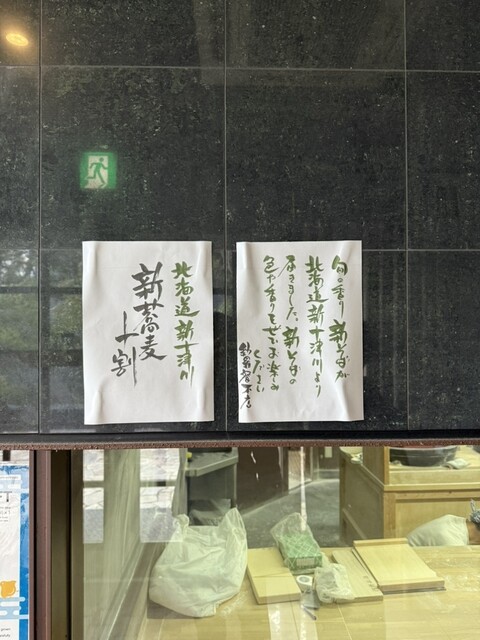 旬の香り 新そばが
北海道新十津川より
届きました。新そばの
色や香りもぜひお楽しみ
ください
北海道新十津川
新蕎麦
十割